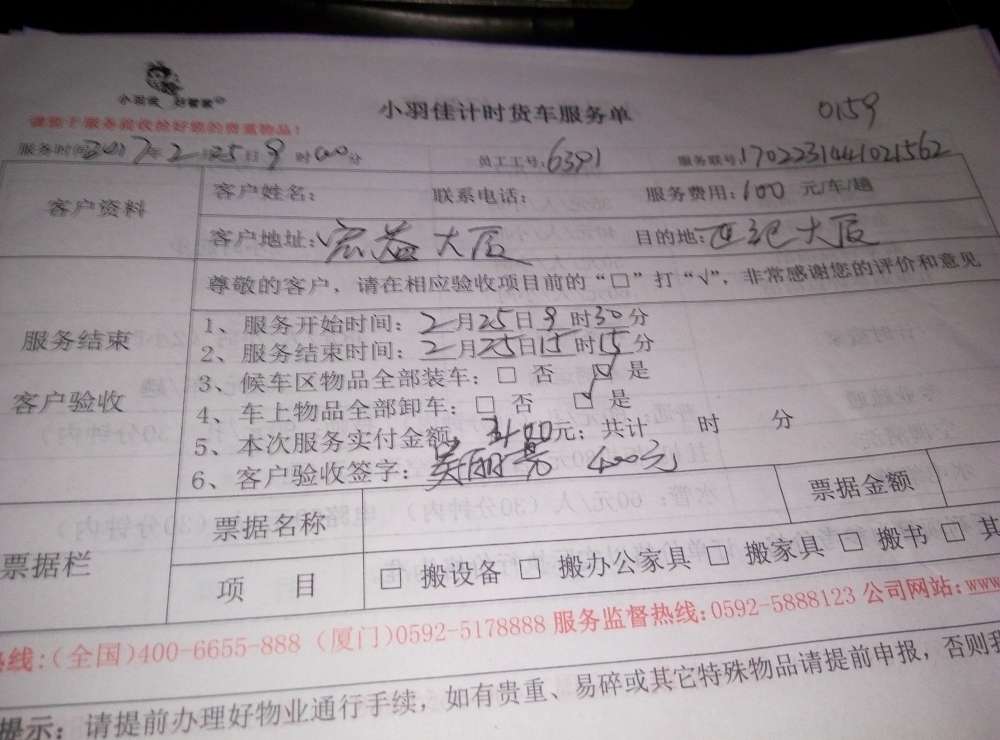 小羽佳计时货车服务单
0159
服务时间2017年2月25日9时00分 员工工号:6391 服务联号:1702231441021562
客户资料
客户姓名: 联系电话: 服务费用:100 元/车/趟
客户地址:宏益大厦 目的地:世纪大厦
尊敬的客户，请在相应验收项目前的“□”打“√”，非常感谢您的评价和意见
服务结束
客户验收
1、服务开始时间:2月25日9时30分
2、服务结束时间:2月25日15时15分
3、候车区物品全部装车:□ 否 ☑ 是
4、车上物品全部卸车:□ 否 ☑ 是
5、本次服务实付金额: 400元; 共计 时 分
6、客户验收签字: 吴丽亮 400元
票据栏
票据名称 票据金额
项 目 □ 搬设备 □ 搬办公家具 □ 搬家具 □ 搬书 □ 其
线:(全国)400-6655-888 (厦门)0592-5178888 服务监督热线:0592-5888123 公司网站:www
提示: 请提前办理好物业通行手续，如有贵重、易碎或其它特殊物品请提前申报，否则我